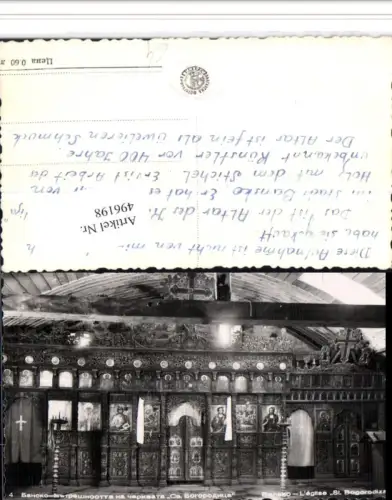 Diese Aufnahme ist nicht von mir
habe sie gekauft
Das ist der Altar der K.
in Stadt Bansko. Er hat es von
Holz mit dem Stichel. Er ist Arbeit
unbekannt Künstler vor 400 Jahre.
Der Altar ist fein als uwelieren Schmuck
Цена 0.60 л
Artikel Nr.
496198
4 Банско вътрешността на черквата „Св. Богородица"
Bansko - L'église „St. Bogoroditza